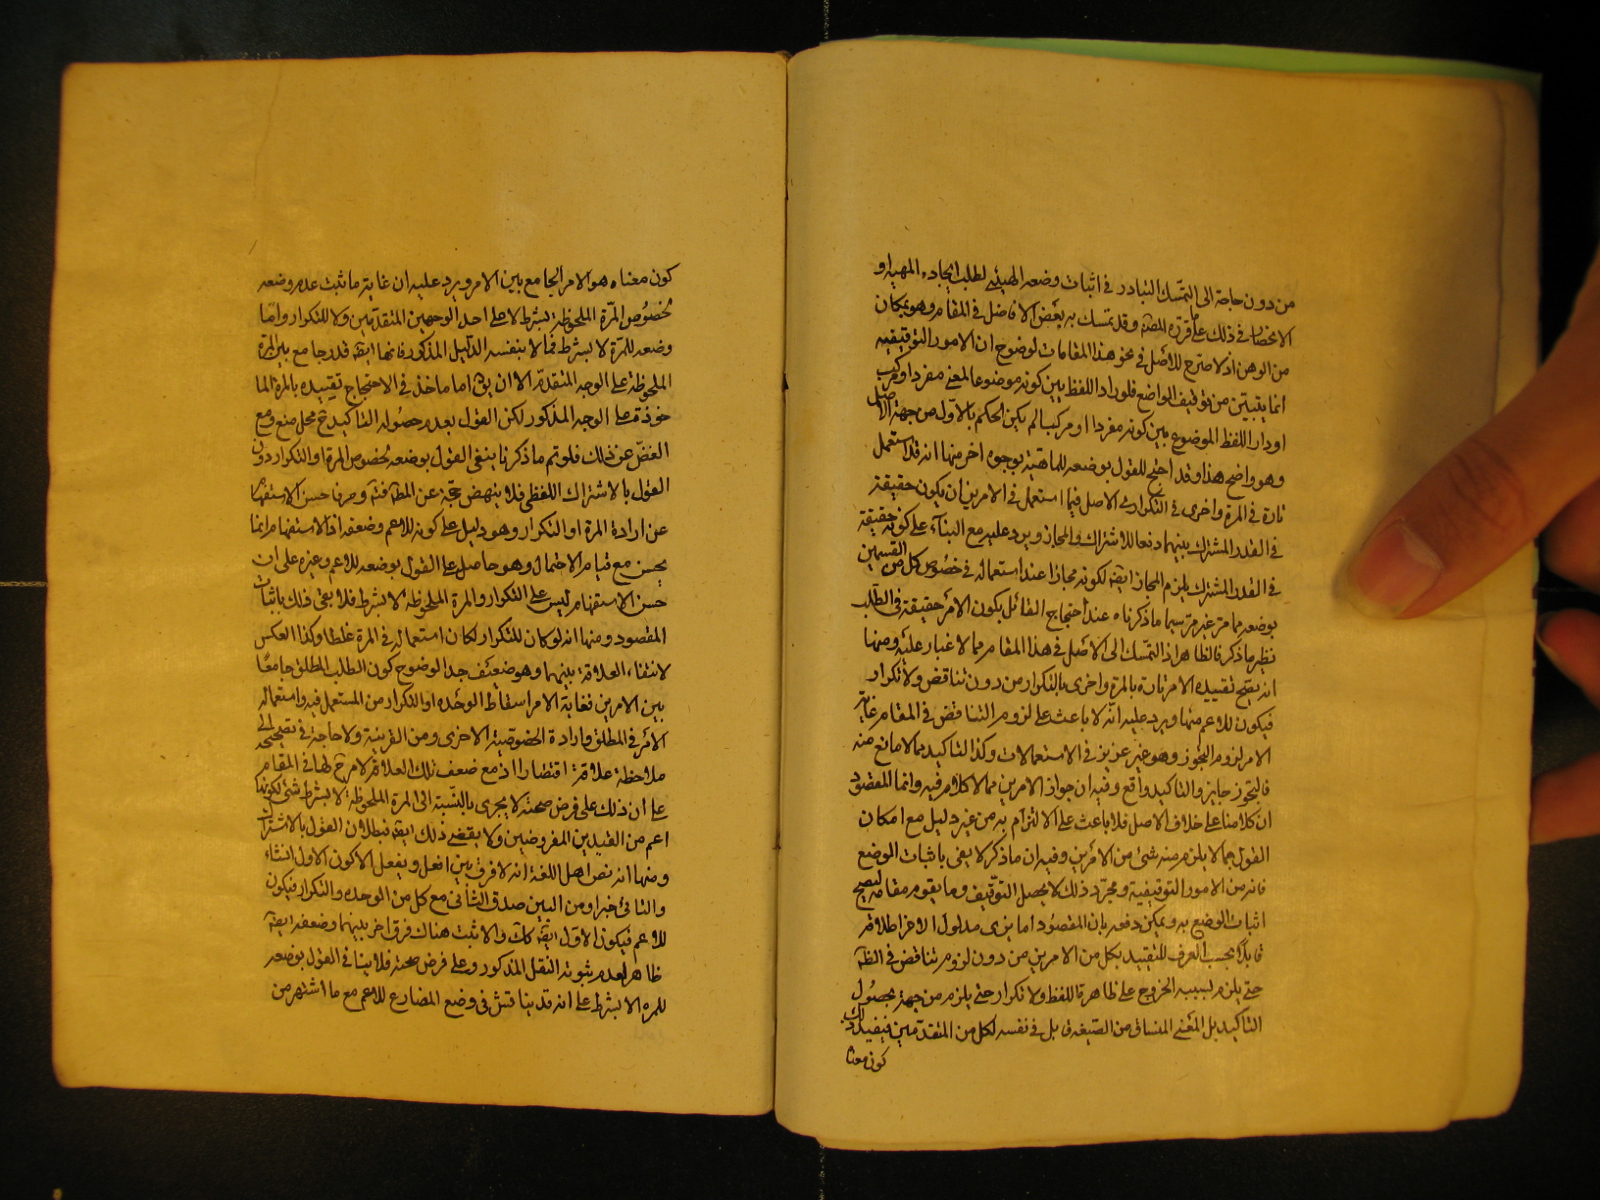 من دون حاجة الى التمسك التبادر في اثبات وضعه الهيئي لطلب ايجاده المهية او
الانحصار في ذلك على ما قررة المصنف وقد تمسك به بعض الافاضل في المقام وهو بمكان
من الوهن اذ لا مسرح للاصل في نحو هذا المقامات لوضوح ان الامور التوقيفيه
انما يتبين من توقيف الواضع فلو دار اللفظ بين كونه موضوعا لمعنى مفرد او مركب
او دار اللفظ الموضوع بين كونه مفردا او مركبا لم يكن الحكم بالاول من جهة الاصل
وهو واضح هذا وقد احتج للقول بوضعه للماهية بوجوه اخر منها انه قد استعمل
تارة في المرة واخرى في التكرار والاصل فيما استعمل في الامرين ان يكون حقيقة
في القدر المشترك بينهما دفعا للاشتراك والمجاز ويرد عليه مع البناء على كونه حقيقة
في القدر المشترك يلزم المجاز ايضه لكونه مجازا عند استعماله في خصوص كل من القسمين
بوضعه مما مر غير مرة سيما ما ذكرناه عند احتجاج القائل بكون الامر حقيقة في الطلب
نظير ما ذكر فالظاهر اذ التمسك الى الاصل في هذا المقام مما لا غبار عليه ومنها
انه يصح تقييده الامر تارة بالمرة واخرى بالتكرار من دون تناقض ولا تكرار
فيكون للاعم منهما ويرد عليه انه لا باعث على لزوم التناقض في المقام غاية
الامر لزوم التجوز وهو غير عزيز في الاستعمالات وكذا التاكيد مما لا مانع منه
فالتجوز جايز والتاكيد واقع وفيه ان جواز الامرين مما لا كلام فيه وانما المقصود
ان كلامنا على خلاف الاصل فلا باعث على الالتزام به من غير دليل مع امكان
القول بما لا يلزم منه شئ من الامرين وفيه ان ما ذكر لا يفي باثبات الوضع
فانه من الامور التوقيفية ومجرد ذلك لا يحصل التوقيف وما يقوم مقامه ليصح
اثبات الوضع به ويمكن دفعه بان المقصود اما يرى مدلول الامر اطلاقه
قابلا بحسب العرف للتقييد بكل من الامرين من دون لزوم تناقض في الظه
حتى يلزم بسببه الخروج على ظاهرة اللفظ ولا تكرار حتى يلزم من جهة حصول
التاكيد بل المعنى المنساق من الصيغه قابل في نفسه لكل من المتقدمين فيفيد ذلك
كون معنا
كون معناه هو الامر الجامع بين الامر ويرد عليه ان غاية ما ثبت عدم وضعه
لخصوص المرة الملحوظة بشرط لا على احد الوجهين المتقدمين ولا للتكرار واما
وضعه للمرة لا بشرط فما لا بنفسه الدليل المذكور فانها ايضه قدر جامع بين المرة
الملحوظة على الوجه المتقدم الا ان يقه اما ماخذ في الاحتجاج تقييده بالمرة الما
خوذة على الوجه المذكور لكن القول بعدم حصول التاكيد ح محل منع ومع
الغض عن ذلك فلو تم ما ذكر فانما ينفى القول بوضعه لخصوص المرة او التكرار دون
القول بالاشتراك اللفظى فلا ينهض حجة عن المطه فته ومنها حسن الاستفهام
عن ارادة المرة او التكرار وهو دليل على كونه للاعم وضعفه اذ الاستفهام انما
يحسن مع قيام الاحتمال وهو حاصل على القول بوضعه للاعم وغيره على ان
حسن الاستفهام ليس على التكرار والمرة الملحوظة لا بشرط فلا يفى ذلك باثبات
المقصود ومنها انه لو كان للتكرار لكان استعماله في المرة غلطا وكذا العكس
لانتفاء العلاقة بينهما وهو ضعيف جدا لوضوح كون الطلب المطلق جامعا
بين الامرين فغاية الامر اسقاط الوحده او التكرار من المستعمل فيه واستعماله
الامر في المطلق وارادة الخصوصية الاخرى ومن القرينة ولا حاجة في تصحيحه الى
ملاحظة علاقة اقتضارا اذ مع ضعف تلك العلاقة لا مرجح لها في المقام
على ان ذلك على فرض صحته لا يجرى بالنسبة الى المرة الملحوظة لا بشرط شئ لكونها
اعم من القيدين المفروضين ولا يقتضى ذلك ايضه فبطلان القول بالاشتراك
ومنها انه نص اهل اللغة انه لا فرق بين افعل ويفعل الا كون الاول انشاء
والثانى خبرا ومن البين صدق الثانى مع كل من الوحده والتكرار فيكون
للاعم فيكون الاول ايضه كك والا ثبت هناك فرق اخر بينهما وضعفه ايضه
ظاهر لعدم ثبوته النقل المذكور وعلى فرض صحته فلا ينافى القول بوضعه
للمره لا بشرط على انه قد يناقش في وضع المضارع للاعم مع ما اشتهر من